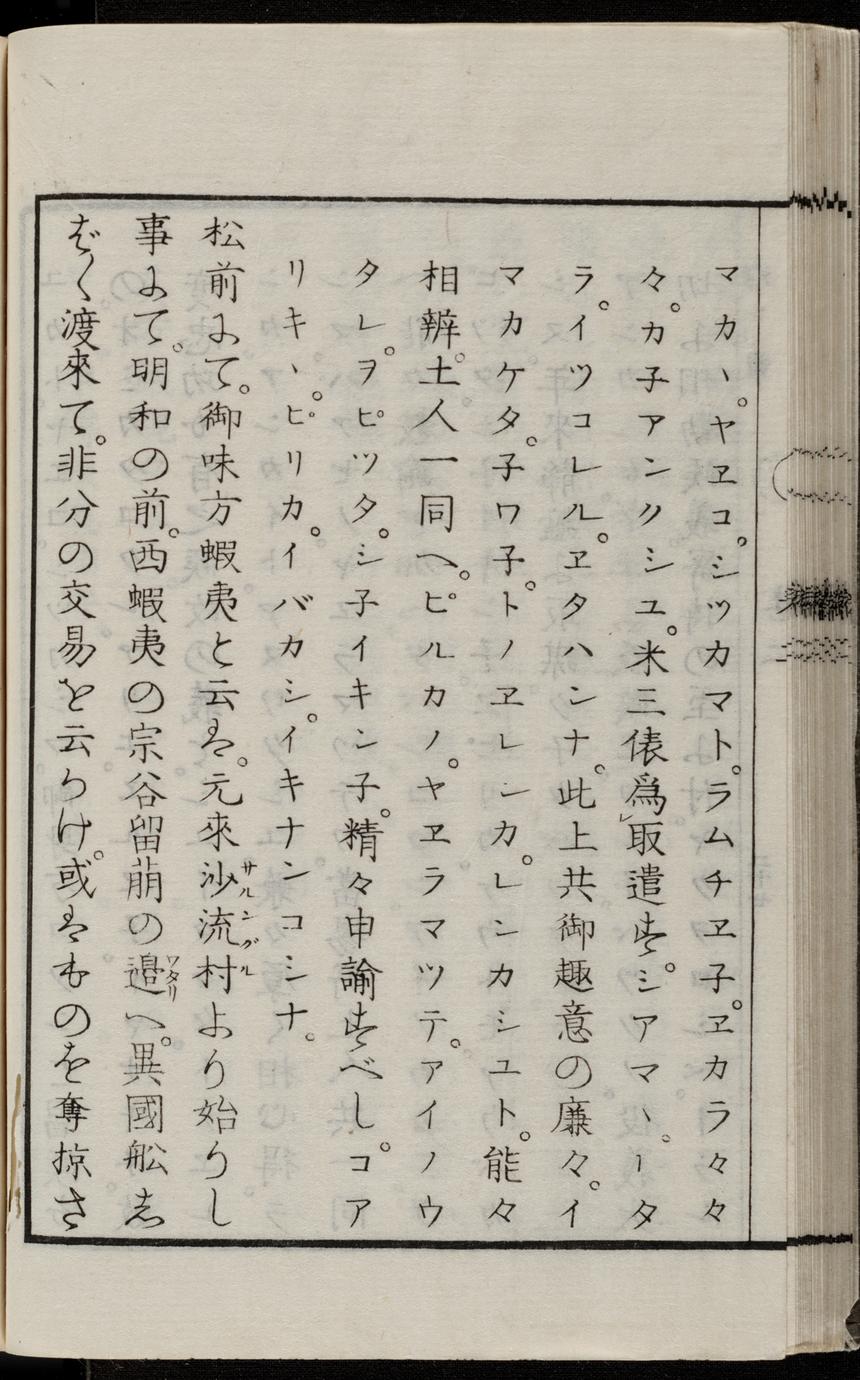 マカヽ。ヤヱコ。シツカマト。ラムチヱ子。ヱカラ々々
々。カ子アンクシユ。米三俵爲取遣す。シアマヽ。ータ
ラ。イツコレル。ヱタハンナ。此上共御趣意の廉々。イ
マカケタ。子ワ子。トノヱレンカ。レンカシユト。能々
相辨。土人一同へ。ピルカノ。ヤヱラマツテ。アイノウ
タレ。ヲピツタ。シ子イキン子。精々申諭すべし。コア
リキヽ。ピリカ。イバカシ。イキナンコシナ。
松前にて。御味方蝦夷と云は。元來沙流村サルンクルより始りし
事にて。明和の前。西蝦夷の宗谷留萠の邉ワタリへ。異國舩し
ば〱渡來て。非分の交易を云かけ。或はものを奪掠さ